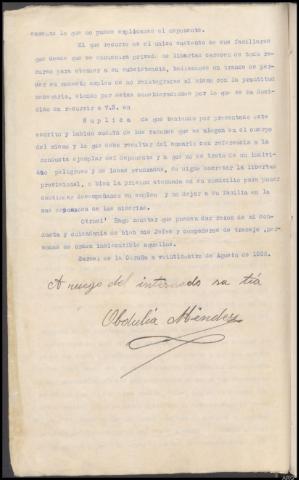 que no puede explicarse el exponente.
El que recurre es el unico sustento de sus familiares
que desde que se encuentra privado de libertad carecen de todo re-
curso para atender a su subsistencia, hallandose en trance de per-
der su modesto empleo de no reintegrarse al mismo con la prontitud
necesaria, siendo por estas consideraciones por lo que se ha deci-
dido en recurrir a V.S. en
S u p l i c a de que teniendo por presentado este
escrito y habida cuenta de las razones que se alegan en el cuerpo
del mismo y la que debe resultar del sumario con referencia a la
conducta ejemplar del exponente y a que no se trata de un indivi-
duo peligroso y de ideas avanzadas, se digne decretar la libertad
provisional, o bien la prision atenuada en su domicilio para poder
continuar desempeñando su empleo y no dejar a su familia en la
mas de las miserias.
Otrosi: Hago constar que pueden dar razon de mi con-
ducta y mis Jefes y compañeros de trabajo, per-
sonas de aquellos.
de la Coruña a veinticuatro de Agosto de
A ruego del internado su tía
Obdulia Méndez